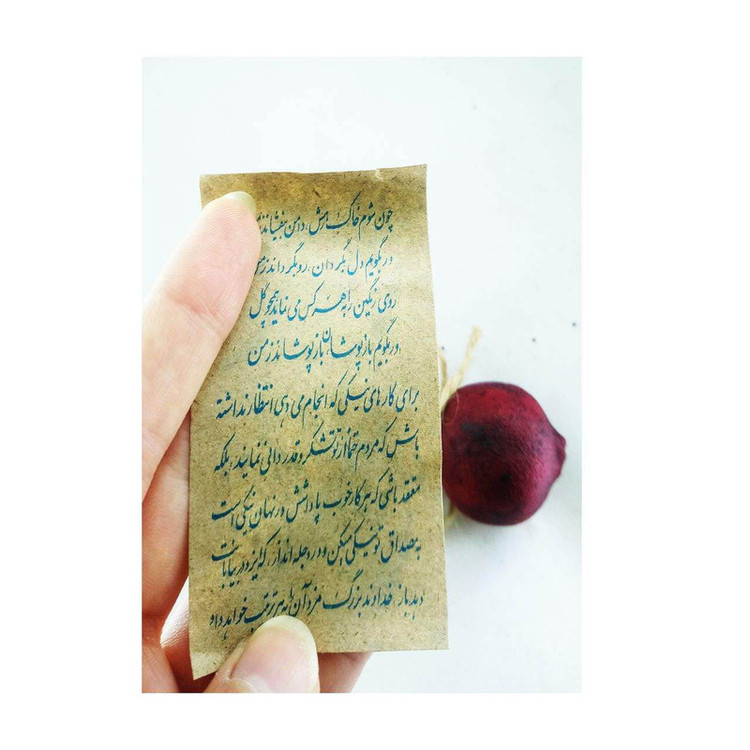 چون شوم خاک رهش، دامن بیفشاند ز من
ور بگویم دل بگردان، رو بگرداند ز من
روی رنگین را به هر کس می نماید همچو گل
ور بگویم باز پوشان باز پوشاند ز من
برای کارهای نیکی که انجام می دهی انتظار نداشته
باش که مردم حتما از تو تشکر و قدردانی نمایند، بلکه
معتقد باشی که هر کار خوب پاداشش در نهان نیکی است
به مصداق تو نیکی میکن و در دجله انداز، که ایزد در بیابانت
دهد باز، خداوند بزرگ مزد آن را به هر ترتیب خواهد داد